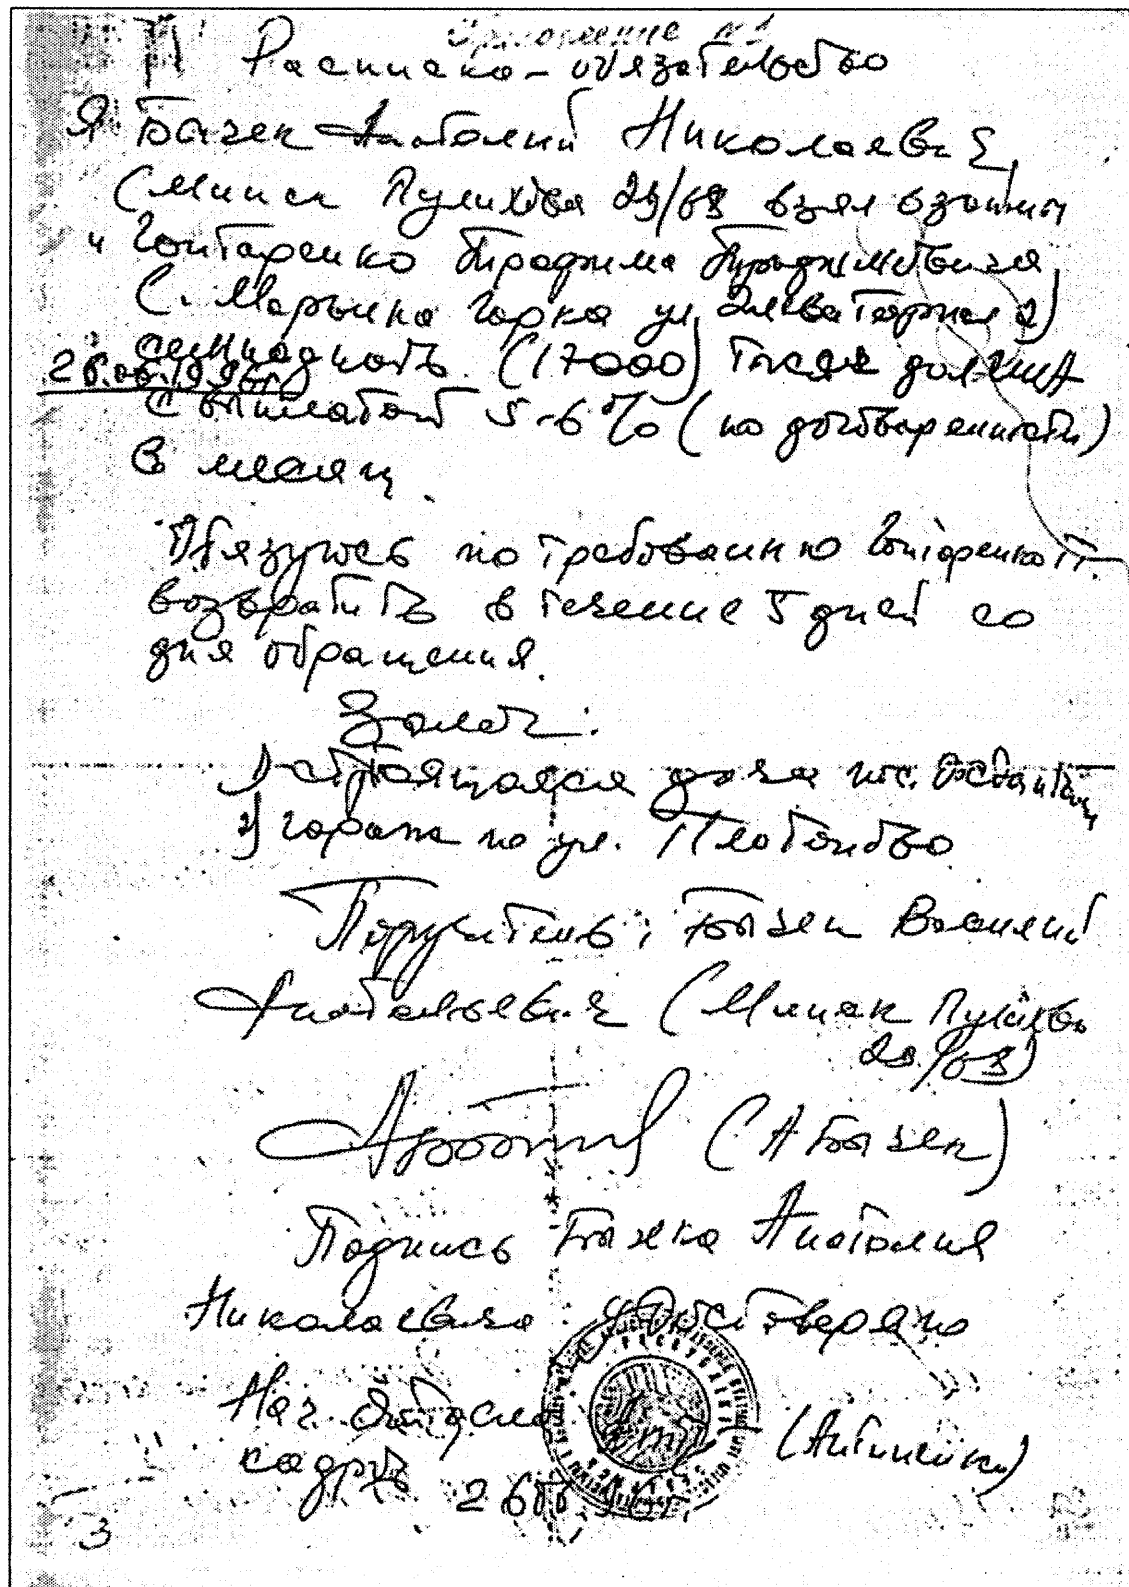 Приложение №1
Расписка-обязательство
Я Бачек Анатолий Николаевич
(Минск Пулихова 29/68 взял взаймы
у Гонтаренко
С. Марьина Горка ул Элеваторная 2)
семнадцать (17000) тысяч
26.06.1996г
с выплатой 5-6% (по договоренности)
в месяц.
Обязуюсь по требованию Гонтаренко Т.
возвратить в течение 5 дней со
дня обращения.
Залог:
1) строящаяся дача пос.
2) гараж по ул.
Поручитель: Бачек Василий
Анатольевич (Минск Пулихова
29/68)
(А Бачек)
Подпись Бачека Анатолия
Николаевича удостоверяю
Нач. отдела
кадров
3